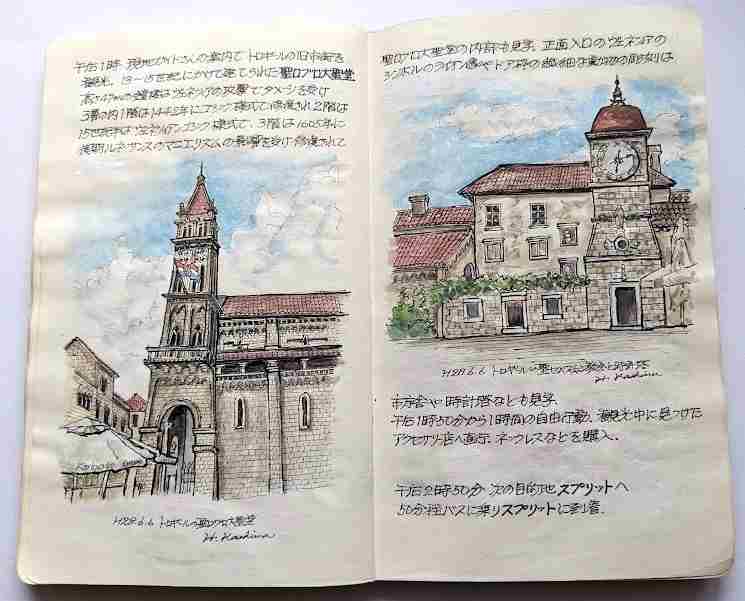 午后1時 現地ガイドさんの案内で トロギールの旧市街を
観光。13～15世紀にかけて建てられた聖ロブロ大聖堂
高さ47mの鐘楼はヴェネツィアの攻撃でダメージを受け
3層の内1階は1442年にゴシック様式で修復され2階は
15世紀半ばヴェネツィアンゴシック様式で、3階は1605年に
後期ルネサンスのマニエリスムの影響を受け修復されて
H28.6.6 トロギールの聖ロブロ大聖堂
H. Kashima
聖ロブロ大聖堂の内部も見学。正面入口のヴェネツィアの
シンボルのライオン像やドア枠の繊細な動物の彫刻は
H28.6.6 トロギールの聖セバスチャン教会と時計塔
H. Kashima
市庁舎や時計塔なども見学
午后1時50分から1時間の自由行動。観光中に見つけた
アクセサリー店へ直行 ネックレスなどを購入。
午后2時50分 次の目的地スプリットへ
50分程バスに乗りスプリットに到着。